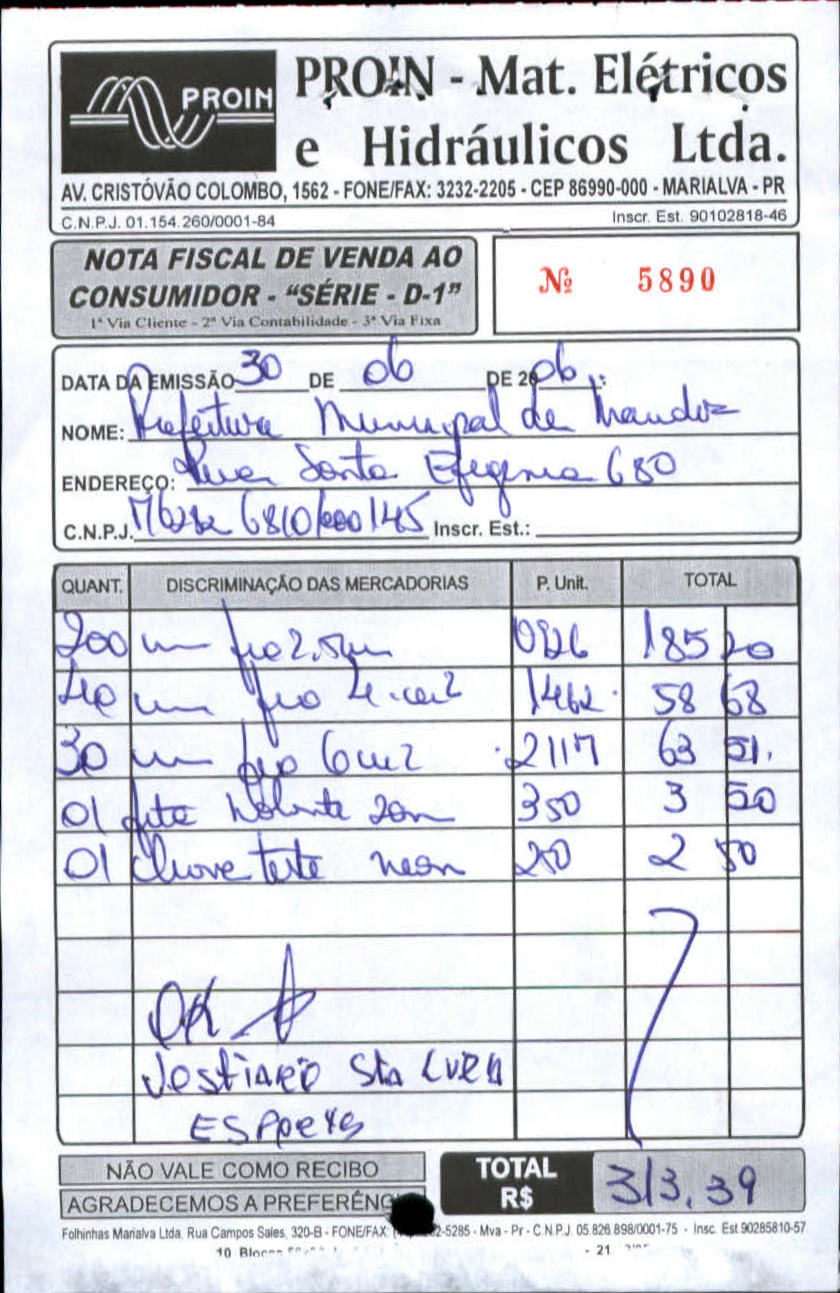 PROIN
PROIN - Mat. Elétricos
e Hidráulicos Ltda.
AV. CRISTÓVÃO COLOMBO, 1562 - FONE/FAX: 3232-2205 - CEP 86990-000 - MARIALVA - PR
C.N.P.J. 01.154.260/0001-84 Inscr. Est. 90102818-46
NOTA FISCAL DE VENDA AO
CONSUMIDOR - "SÉRIE - D-1"
1ª Via Cliente - 2ª Via Contabilidade - 3ª Via Fixa
Nº 5890
DATA DA EMISSÃO 30 DE 06 DE 2006
NOME: Prefeitura Municipal de
ENDEREÇO: Rua Santa Efigenia 680
C.N.P.J. Inscr. Est.:
QUANT. DISCRIMINAÇÃO DAS MERCADORIAS P. Unit. TOTAL
200 m fio 2.5 0926 185 20
40 m fio 4 1462 58 68
30 m fio 6 m2 2117 63 51
01 fita 20m 350 3 50
01 chave teste neon 250 2 50
OK
Vestiario Sta
Esportes
NÃO VALE COMO RECIBO
AGRADECEMOS A PREFERÊNC
TOTAL R$ 313,39
Folhinhas Marialva Ltda. Rua Campos Sales, 320-B - FONE/FAX: 2-5285 - Mva - Pr - C.N.P.J. 05.826.898/0001-75 - Insc. Est.90285810-57
10 Blocos - 21